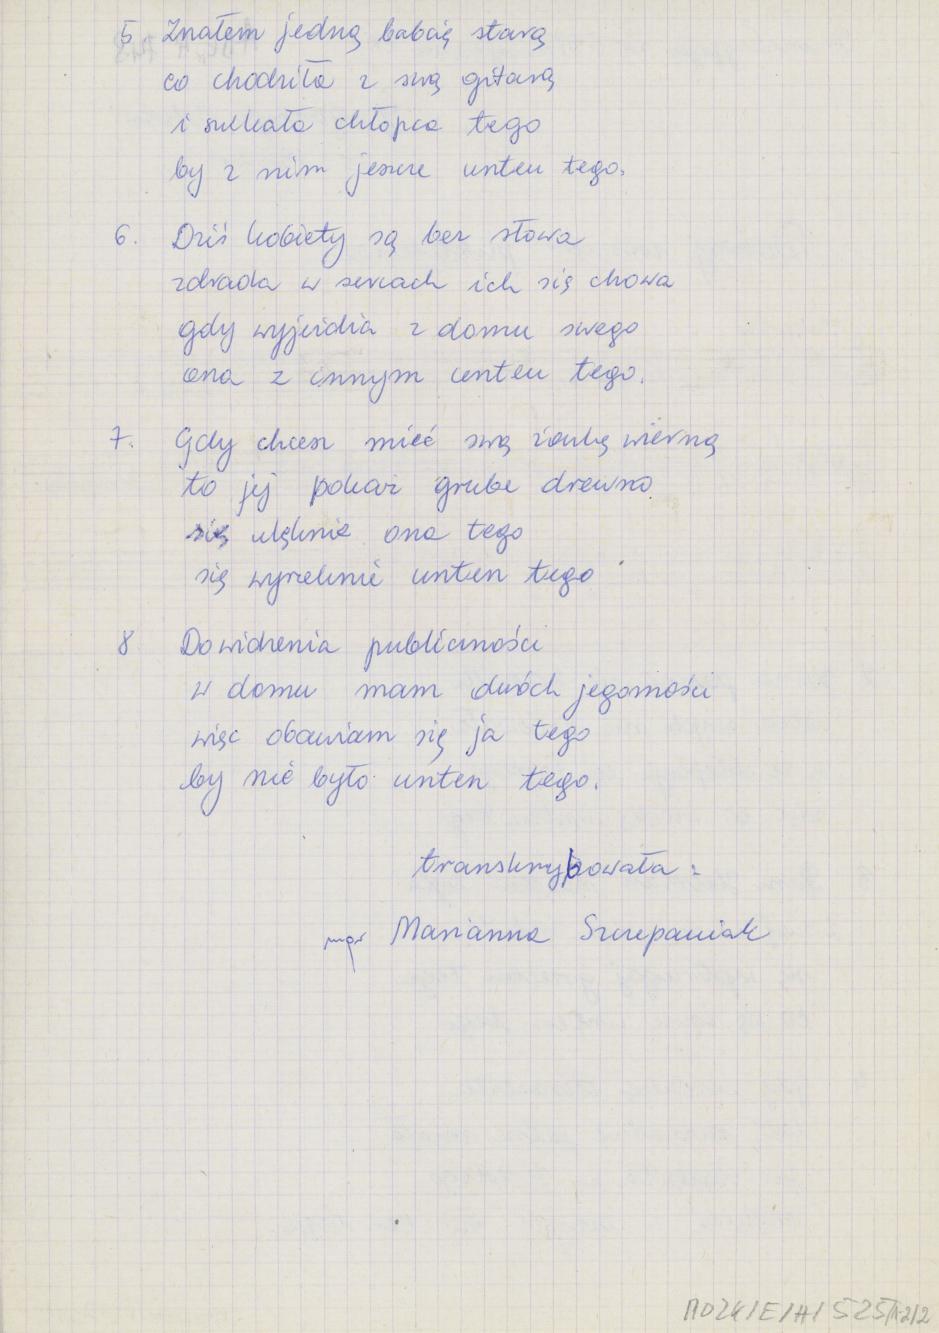 5 Znałem jedną babcię starą
co chodziła z swą gitarą
i szukała chłopca tego
by z nim jeszcze unten tego.
6. Dziś kobiety są bez słowa
zdrada w sercach ich się chowa
gdy wyjeżdża z domu swego
ona z innym unten tego.
7. Gdy chcesz mieć swą żonkę wierną
to jej pokaż grube drewno
ulęknie ona tego
się wyrzeknie unten tego
8 Dowidzenia publiczności
w domu mam dwóch jegomości
więc obawiam się ja tego
by nie było unten tego.
transkrybowała:
mgr Marianna Szczepaniak
MDZK/E/A/525/1-2/2